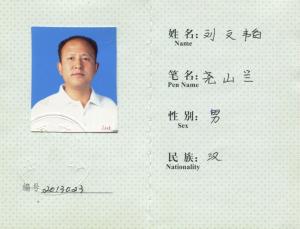 姓名: 刘文韦白
Name
笔名: 尧山兰
Pen Name
性别: 男
Sex
民族: 汉
Nationality
编号 2013023